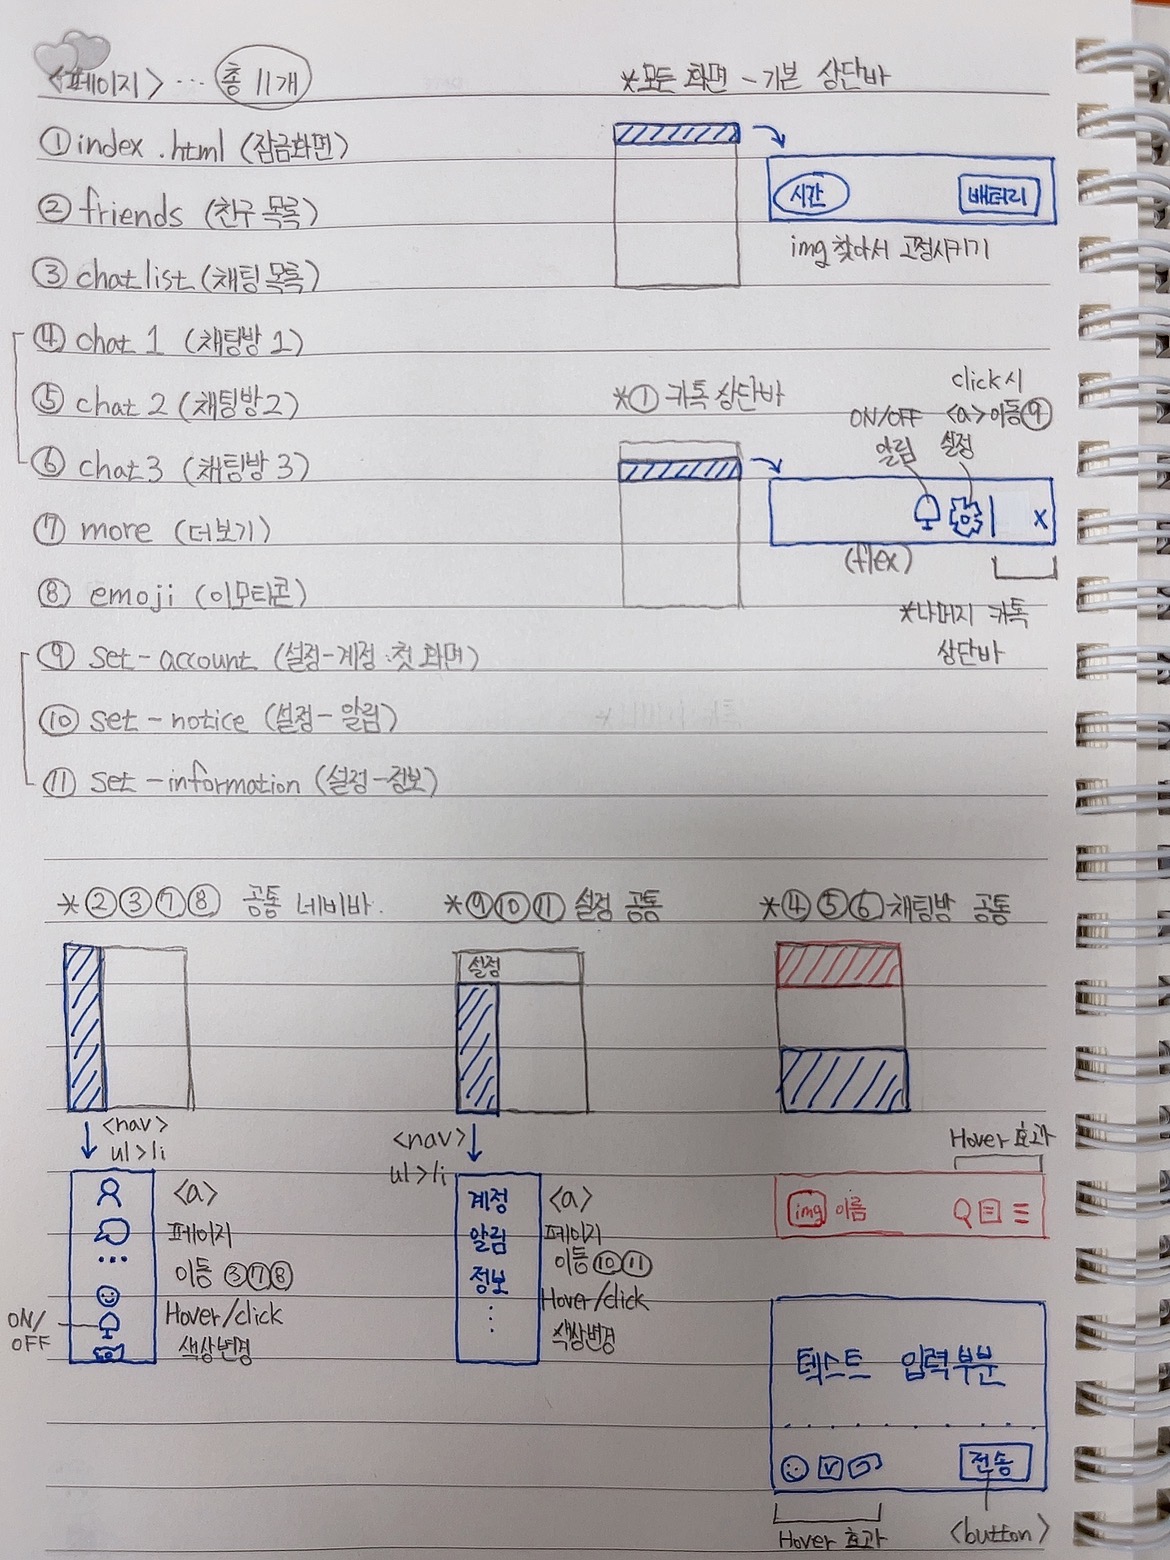 <페이지> ··· 총 11개
① index.html (잠금화면)
② friends (친구 목록)
③ chatlist (채팅 목록)
④ chat 1 (채팅방 1)
⑤ chat 2 (채팅방 2)
⑥ chat 3 (채팅방 3)
⑦ more (더보기)
⑧ emoji (이모티콘)
⑨ set-account (설정-계정·첫 화면)
⑩ set-notice (설정-알림)
⑪ set-information (설정-정보)
*모든 화면 - 기본 상단바
시간 배터리
img 찾아서 고정시키기
*① 카톡 상단바
click 시
ON/OFF <a> 이동⑨
알림 설정
X
(flex)
*나머지 카톡
상단바
*②③⑦⑧ 공통 네비바.
<nav>
ul>li
<a>
페이지
이동 ③⑦⑧
Hover/click
색상변경
ON/
OFF
*⑨⑩⑪ 설정 공통
설정
<nav>
ul>li
계정
알림
정보
<a>
페이지
이동 ⑩⑪
Hover/click
색상변경
*④⑤⑥ 채팅방 공통
Hover 효과
img 이름
텍스트 입력부분
전송
Hover 효과 <button>